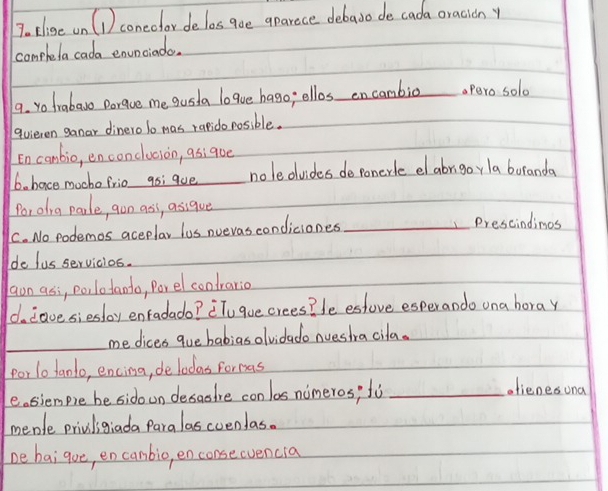 7. Elige un (1) conector de los que aparece debajo de cada oración y
completa cada enunciado.
a. Yo trabajo porque me gusta lo que hago; ellos en cambio . Pero solo
quieren ganar dinero lo mas rapido posible.
En cambio, en conclución, asi que
b. hace mucho frio asi que no le olvides de ponerte el abrigo y la bufanda
Por otra parte, aun asi, asi que
c. No podemos aceptar tus nuevas condiciones Prescindimos
de tus servicios.
aun asi, por lo tanto, Por el contrario
d. ¿que si estoy enfadado? ¿Tu que crees? Te estove esperando una hora y
me dices que habias olvidado nuestra cita.
por lo tanto, encima, de todas formas
e. siempre he sido un desastre con los números; tú . tienes una
mente priviligiada Para las cuentas.
De hai que, en cambio, en consecuencia